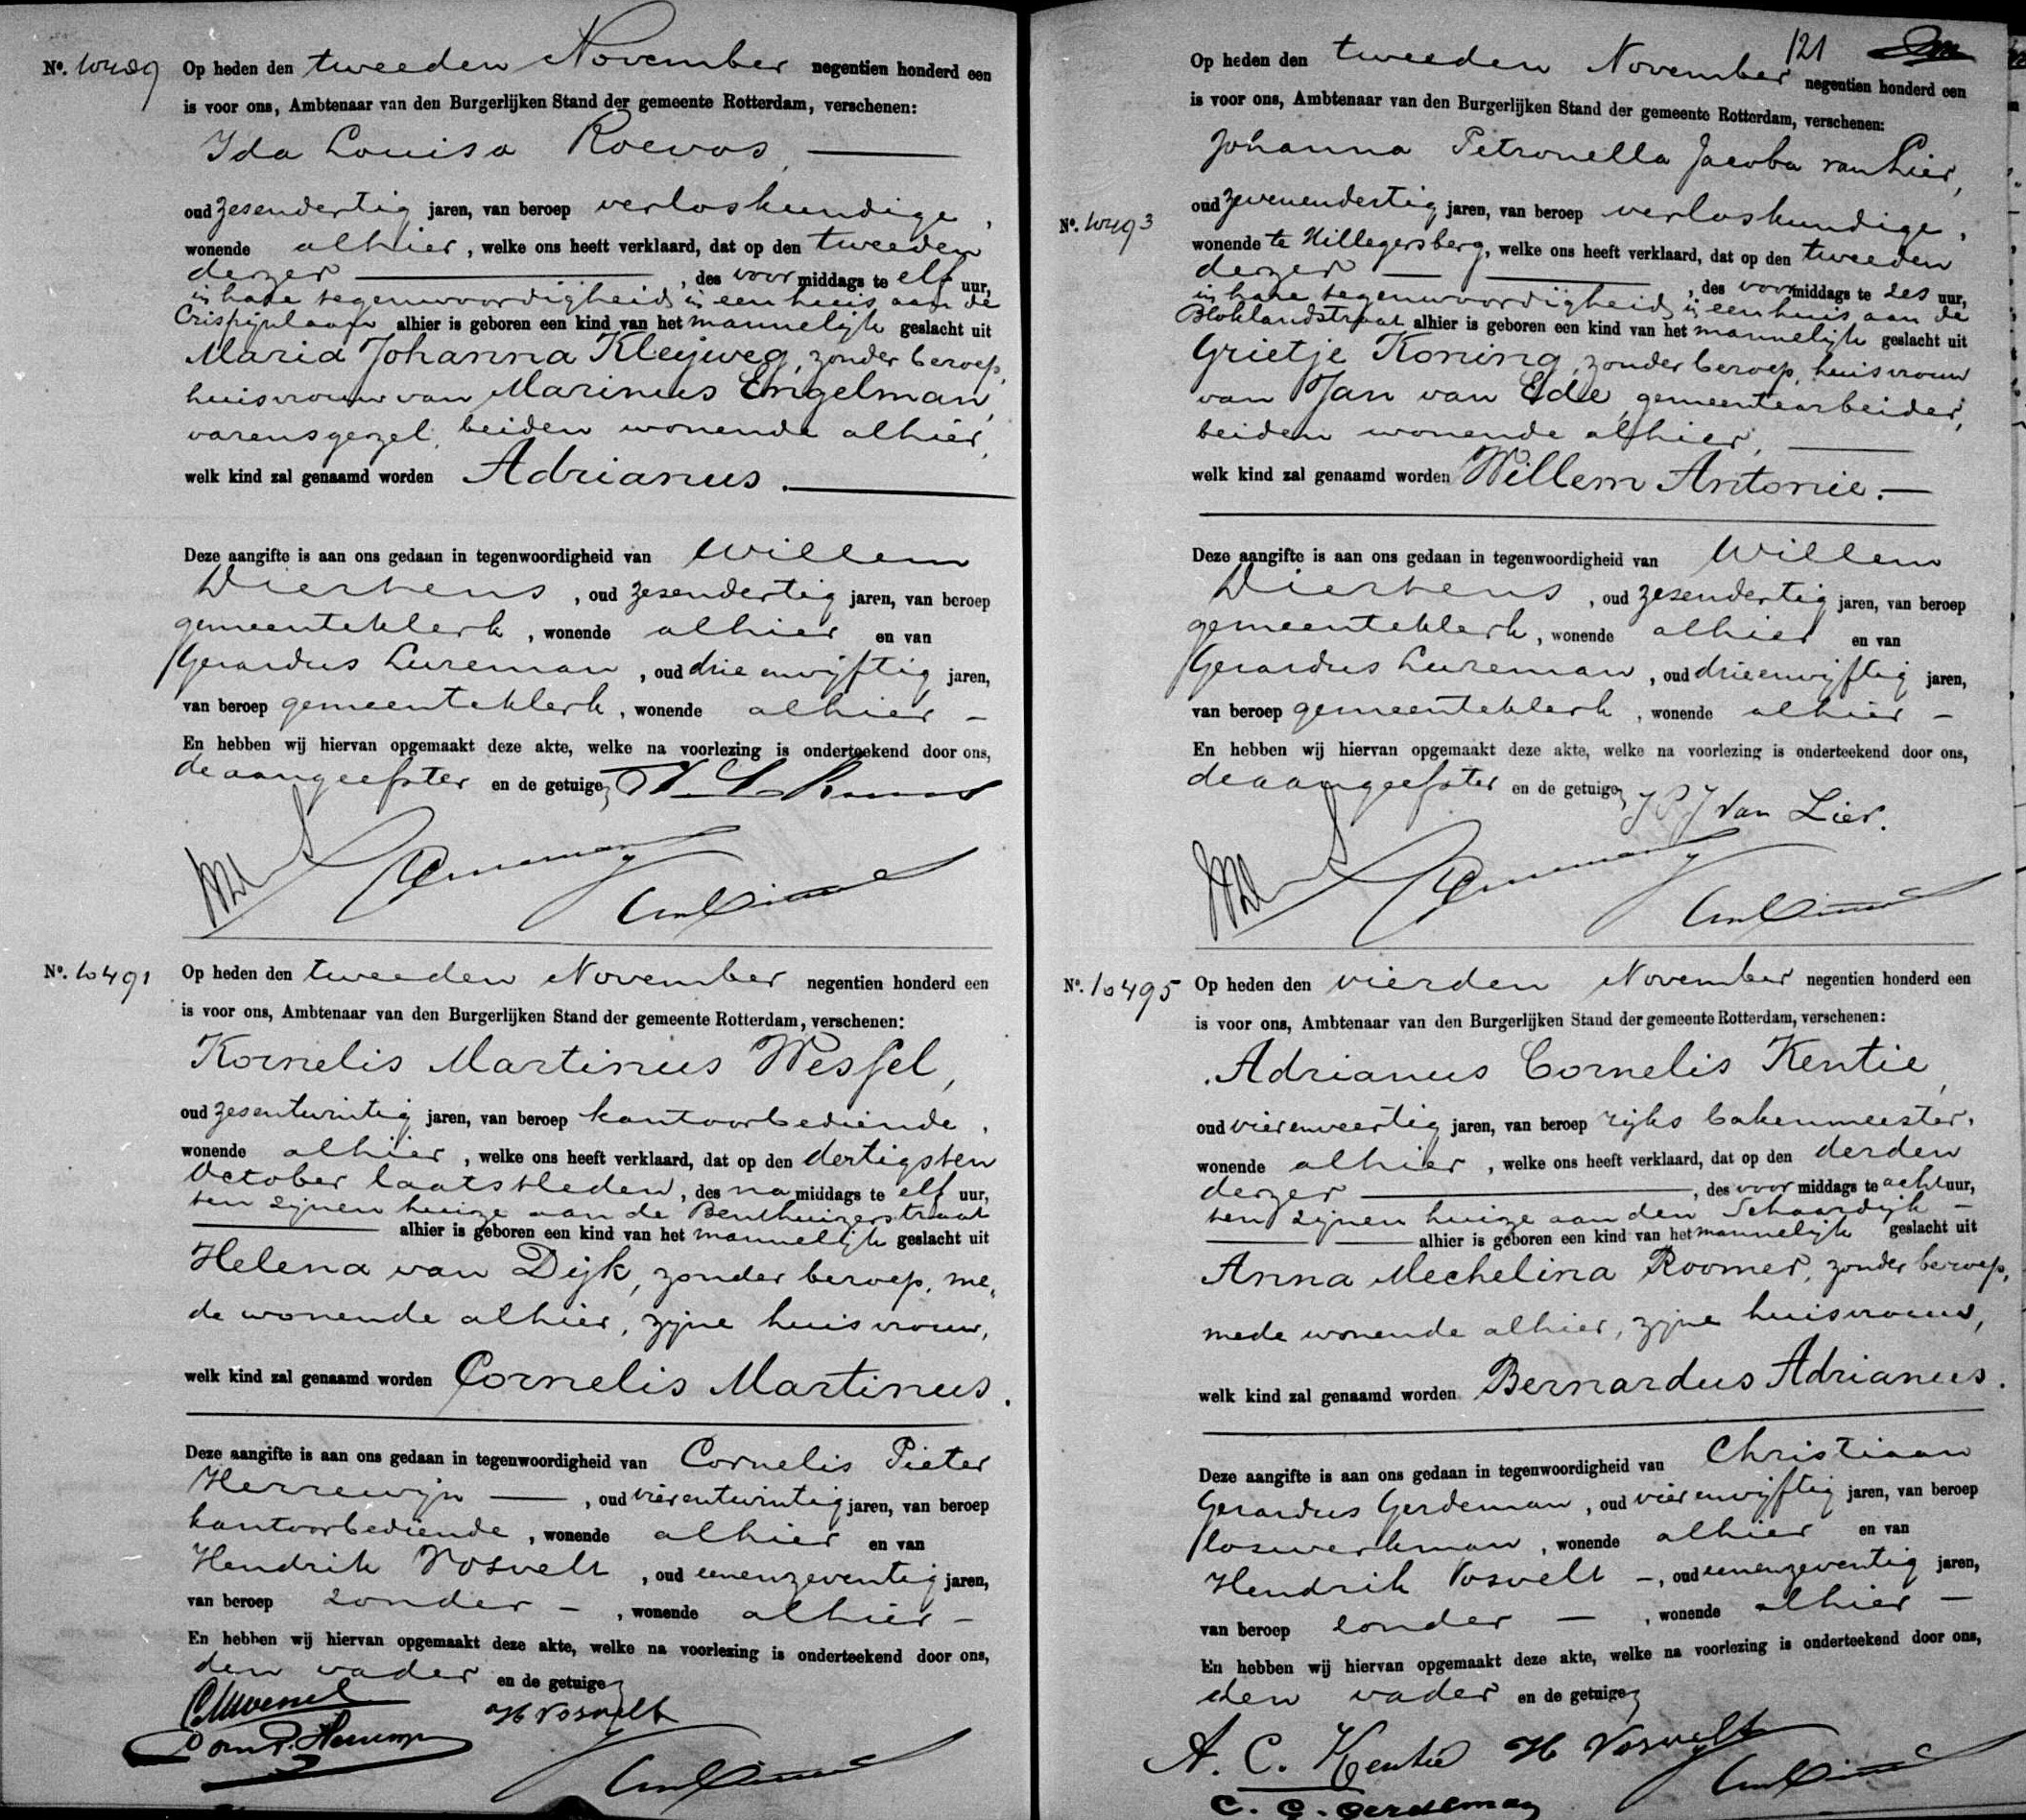 Nº. 10489 Op heden den tweeden November negentien honderd een
is voor ons, Ambtenaar van den Burgerlijken Stand der gemeente Rotterdam, verschenen:
Ida Louisa
oud zesendertig jaren, van beroep verloskundige,
wonende alhier, welke ons heeft verklaard, dat op den tweeden
dezer, des voormiddags te elf uur,
in hare tegenwoordigheid in een huis aan de
Crispijnlaan alhier is geboren een kind van het mannelijk geslacht uit
Maria Johanna Kleijweg, zonder beroep,
huisvrouw van Marinus Engelman,
varensgezel, beiden wonende alhier,
welk kind zal genaamd worden Adrianus.
Deze aangifte is aan ons gedaan in tegenwoordigheid van Willem
Dierkens, oud zesendertig jaren, van beroep
gemeenteklerk, wonende alhier en van
Gerardus Lureman, oud drie envijftig jaren,
van beroep gemeenteklerk, wonende alhier -
En hebben wij hiervan opgemaakt deze akte, welke na voorlezing is onderteekend door ons,
de aangeefster en de getuigen
Nº. 10491 Op heden den tweeden November negentien honderd een
is voor ons, Ambtenaar van den Burgerlijken Stand der gemeente Rotterdam, verschenen:
Kornelis Martinus Wessel,
oud zesentwintig jaren, van beroep kantoorbediende,
wonende alhier, welke ons heeft verklaard, dat op den dertigsten
October laatstleden, des namiddags te elf uur,
ten zijnen huize aan de Benthuizerstraat
alhier is geboren een kind van het mannelijk geslacht uit
Helena van Dijk, zonder beroep, me,
de wonende alhier, zijne huisvrouw,
welk kind zal genaamd worden Cornelis Martinus.
Deze aangifte is aan ons gedaan in tegenwoordigheid van Cornelis Pieter
Herrewijn, oud vierentwintig jaren, van beroep
kantoorbediende, wonende alhier en van
Hendrik Vosvelt, oud eenenzeventig jaren,
van beroep zonder -, wonende alhier -
En hebben wij hiervan opgemaakt deze akte, welke na voorlezing is onderteekend door ons,
den vader en de getuigen
H Vosvelt
121
Op heden den tweeden November negentien honderd een
is voor ons, Ambtenaar van den Burgerlijken Stand der gemeente Rotterdam, verschenen:
Johanna Petronella Jacoba van Lier,
Nº. 10493 oud zevenendertig jaren, van beroep verloskundige,
wonende te Hillegersberg, welke ons heeft verklaard, dat op den tweeden
dezer, des voormiddags te zes uur,
in hare tegenwoordigheid in een huis aan de
Bloklandstraat alhier is geboren een kind van het mannelijk geslacht uit
Grietje Koning, zonder beroep, huisvrouw
van Jan van Ede, gemeentearbeider,
beiden wonende alhier,
welk kind zal genaamd worden Willem Antonie.
Deze aangifte is aan ons gedaan in tegenwoordigheid van Willem
Dierkens, oud zesendertig jaren, van beroep
gemeenteklerk, wonende alhier en van
Gerardus Lureman, oud drieenvijftig jaren,
van beroep gemeenteklerk, wonende alhier -
En hebben wij hiervan opgemaakt deze akte, welke na voorlezing is onderteekend door ons,
de aangeefster en de getuigen J P J van Lier.
Nº. 10495 Op heden den vierden November negentien honderd een
is voor ons, Ambtenaar van den Burgerlijken Stand der gemeente Rotterdam, verschenen:
Adrianus Cornelis Kentie,
oud vierenveertig jaren, van beroep rijks bakenmeester,
wonende alhier, welke ons heeft verklaard, dat op den derden
dezer, des voormiddags te acht uur,
ten zijnen huize aan den Schaardijk -
alhier is geboren een kind van het mannelijk geslacht uit
Anna Mechelina Roomer, zonder beroep,
mede wonende alhier, zijne huisvrouw,
welk kind zal genaamd worden Bernardus Adrianus.
Deze aangifte is aan ons gedaan in tegenwoordigheid van Christiaan
Gerardus Gerdeman, oud vierenvijftig jaren, van beroep
loswerkman, wonende alhier en van
Hendrik Vosvelt -, oud eenenzeventig jaren,
van beroep zonder -, wonende alhier -
En hebben wij hiervan opgemaakt deze akte, welke na voorlezing is onderteekend door ons,
den vader en de getuigen
A. C. Kentie H Vosvelt
C. G. Gerdeman